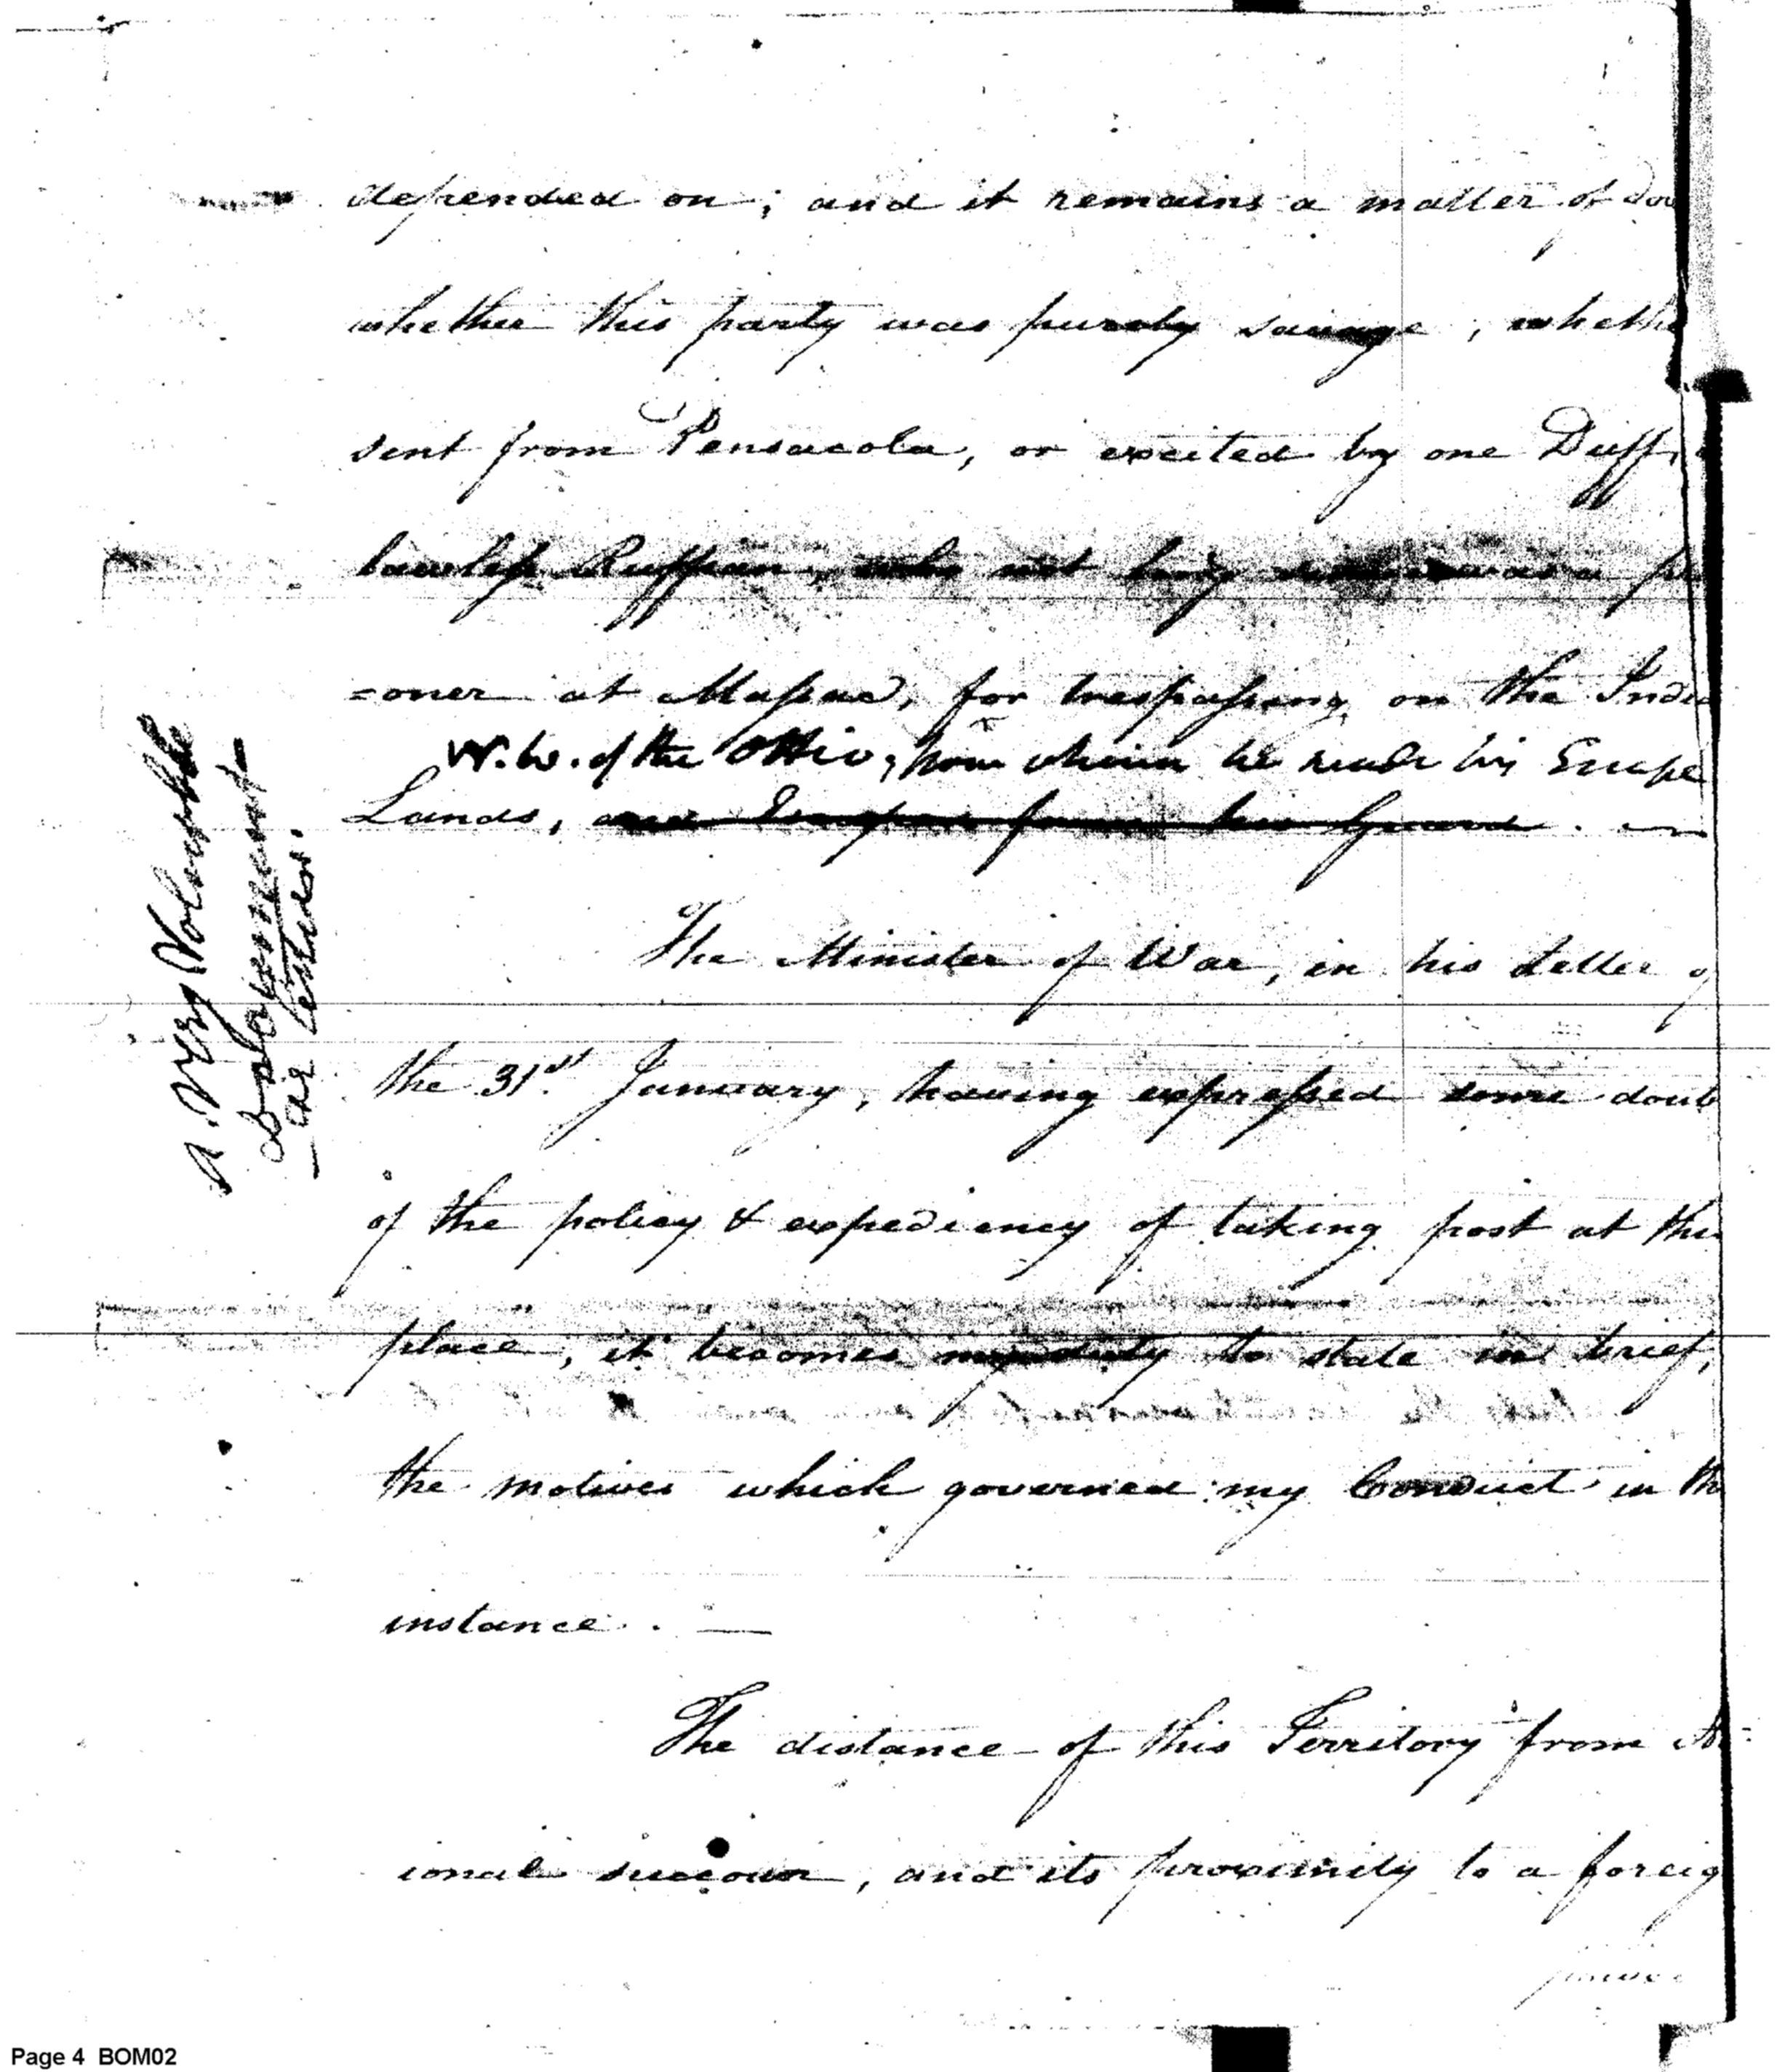 depended on; and it remains a matter of dou
whether this party was purely savage, whethe
sent from Pensacola, or excited by one Duff,
lawless Ruffian, who not long was a pri
=oner at Massac, for trespassing on the India
N.W. of the Ohio, from whom he made his Escape
Lands, and Escaped from his Guard.
The Minister of War, in his Letter of
the 31st January, having expressed some doub
of the policy & expediency of taking post at this
place, it becomes my duty to state in brief,
the motives which governed my Conduct in th
instance. —
The distance of this Territory from
ional succour, and its proximity to a foreig
A. Very Voluble
Page 4 BOM02